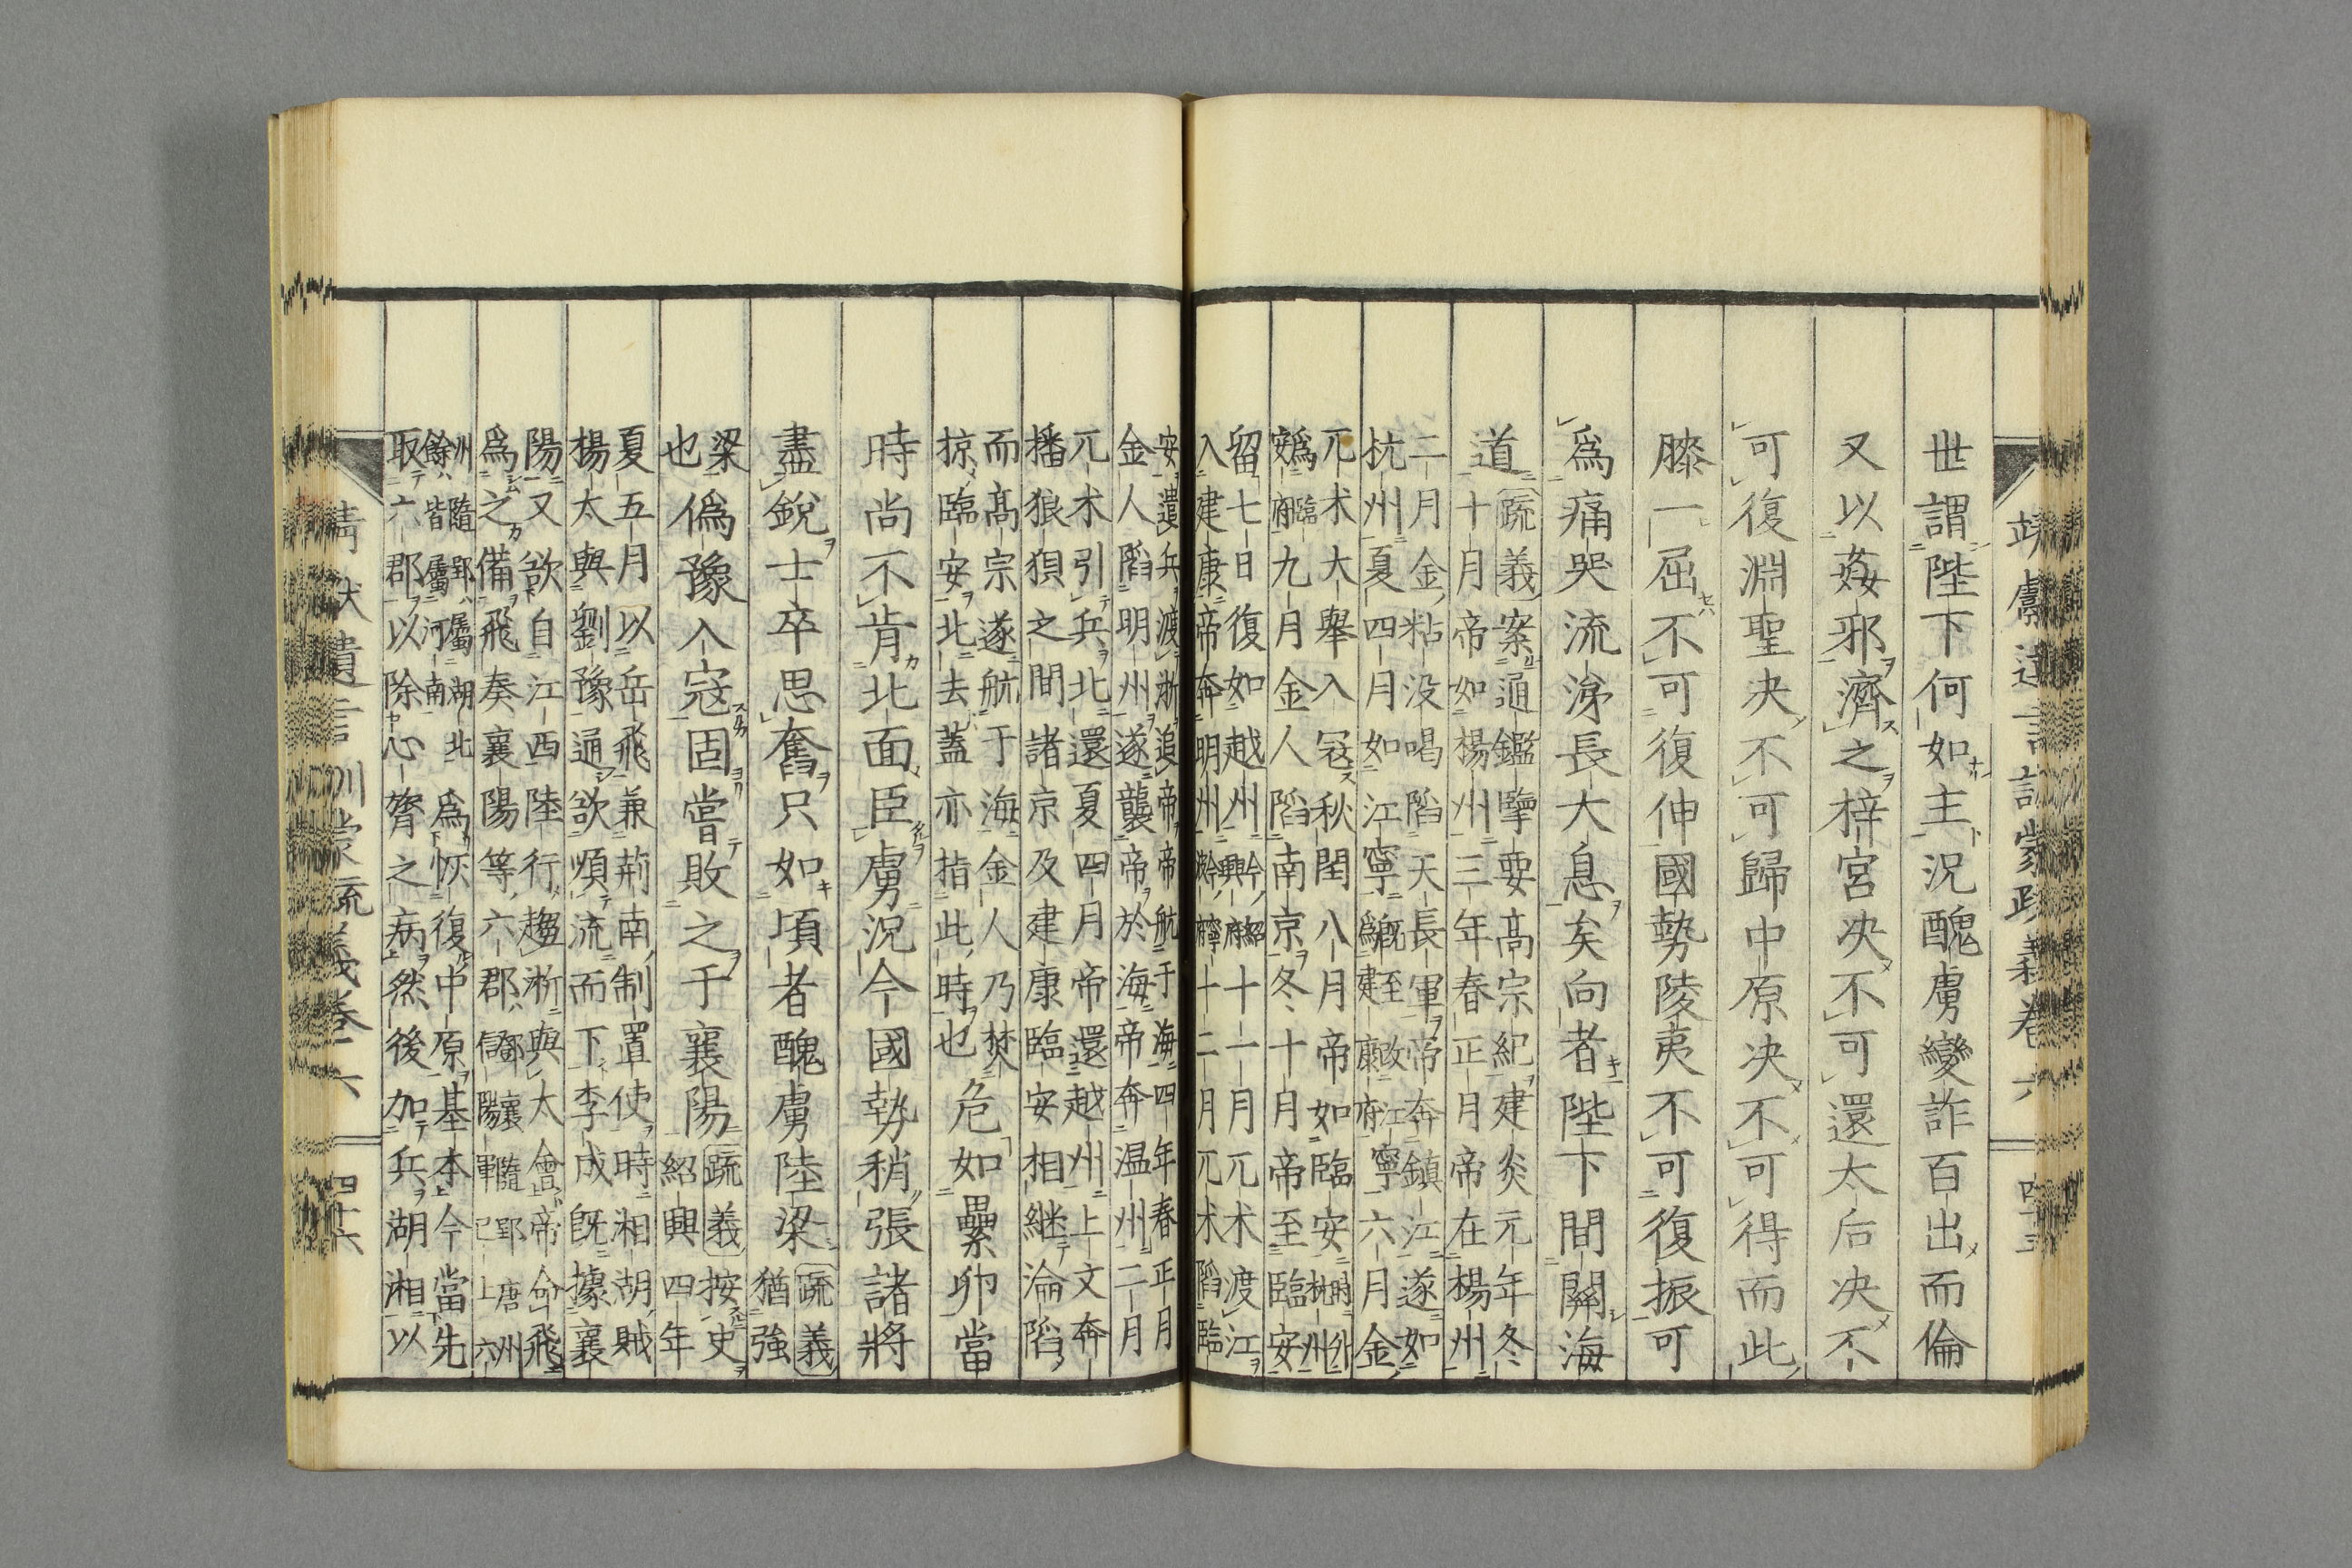 靖獻遺言訓蒙疏義卷六
世謂陛下何如主況醜虜變詐百出而倫
又以姦邪濟之梓宮决不可還太后决不
可復淵聖决不可歸中原决不可得而此
膝一屈不可復伸國勢陵夷不可復振可
爲痛哭流涕長大息矣向者陛下間關海
道
疏義
案通鑑擥要高宗紀建炎元年冬
十月帝如楊州三年春正月帝在楊州
二月金粘没喝陷天長軍帝奔鎮江遂如
杭州夏四月如江寧
既至改江寧
爲建康府
六月金
兀术大舉入寇秋閏八月帝如臨安
杭州
爲臨
安府
九月金人陷南京冬十月帝至臨安
留七日復如越州
今紹
興府
十一月兀术渡江
入建康帝奔明州
十二月兀术陷臨
安遣兵渡浙追帝帝航于海四年春正月
金人陷明州遂襲帝於海帝奔温州二月
兀术引兵北還夏四月帝還越州上文奔
播狼狽之間諸京及建康臨安相継淪陷
而高宗遂航于海金人乃焚
掠臨安北去蓋亦指此時也
危如累卯當
時尚不肯北面臣虜況今國勢稍張諸將
盡銳士卒思奮只如頃者醜虜陸梁
疏義
猶強
梁
也
偽豫入寇固嘗敗之于襄陽
疏義
按史
紹興四年
夏五月以岳飛兼荊南制置使時湘胡賊
楊太與劉豫通欲順流而下李成既據襄
陽又欲自江西陸行趨浙與太會帝命飛
爲之備飛奏襄陽等六郡
郢襄隨郢唐州
信陽軍已上六
州隨郢屬湖北
餘皆屬河南
爲恢復中原基本今當先
取六郡以除心膂之病然後加兵湖湘以
靖獻遺言訓蒙疏義卷六
四十六